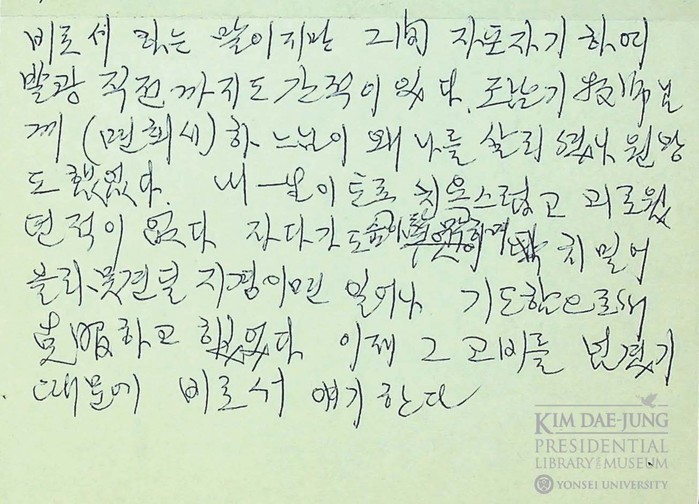 비로서 하는 말이지만 그동안 자포자기 하여
발광 직전까지도 간적이 있다. 또한
께 (면회시) 하느님이 왜 나를 살리셨나 원망
도 했었다. 내 一生이 토록 치욕스럽고 괴로웠
던적이 없다 자다가도 치밀어
올라 못견딜 지경이면 일어나 기도함으로써
克服하고 하였었다 이제 그 고비를 넘겼기
때문에 비로서 얘기한다
KIM DAE-JUNG
PRESIDENTIAL
LIBRARY AND MUSEUM
YONSEI UNIVERSITY